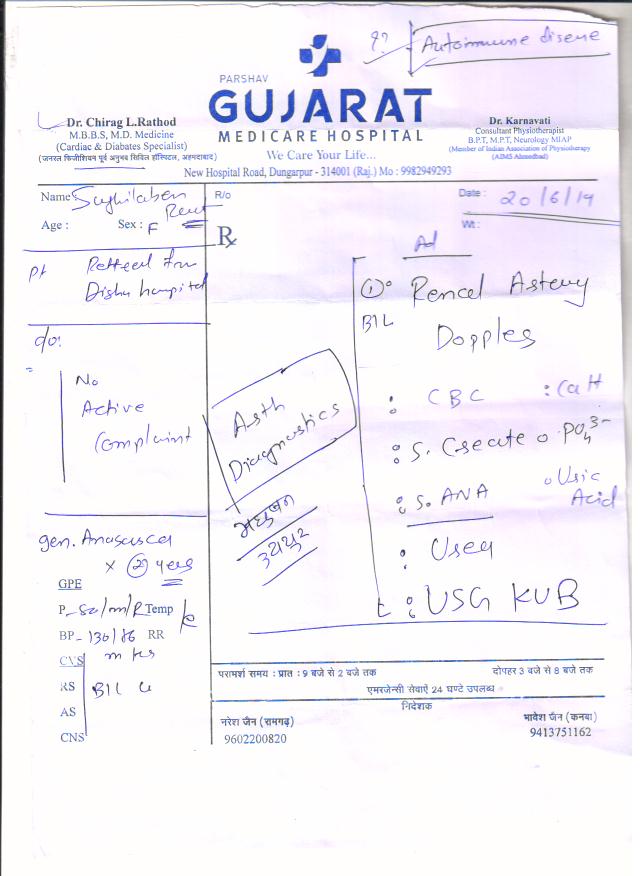 ??
Autoimmune disease
PARSHAV
GUJARAT
MEDICARE HOSPITAL
We Care Your Life...
New Hospital Road, Dungarpur - 314001 (Raj.) Mo : 9982949293
Dr. Chirag L.Rathod
M.B.B.S, M.D. Medicine
(Cardiac & Diabates Specialist)
(जनरल फिजीशियन पूर्व अनुभव सिविल हॉस्पिटल, अहमदाबाद)
Dr. Karnavati
Consultant Physiotherapist
B.P.T, M.P.T, Neurology MIAP
(Member of Indian Association of Physiotherapy)
(AIMS Ahmedbad)
Name
Age : Sex : F
R/o
Rx
Date : 20/6/19
Wt :
pt
Dishu hospital
c/o:
No
Active
Complaint
gen. Anasarca
x (2) years
GPE
P_ 80/m/R Temp
BP_ 130/86 RR
CVS
RS B/L
AS
CNS
Asth
Diagnostics
उदयपुर
Ad
① Rencel Astery
B/L
Dopples
: CBC : Ca++
: S. Cseate o PO₄³⁻
: S. ANA o Usic Acid
: Usea
: USG KUB
परामर्श समय : प्रात : 9 बजे से 2 बजे तक दोपहर 3 बजे से 8 बजे तक
एमरजेन्सी सेवाऐं 24 घण्टे उपलब्ध
निदेशक
नरेश जैन (रामगढ़)
9602200820
भावेश जैन (कनबा)
9413751162